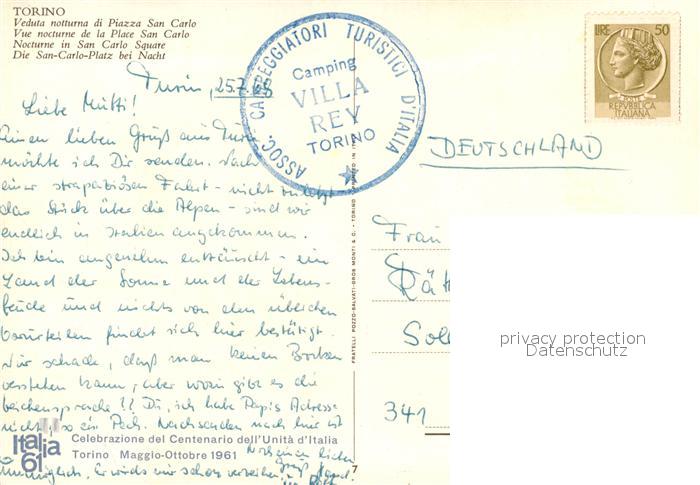 TORINO
Veduta notturna di Piazza San Carlo
Vue nocturne de la Place San Carlo
Nocturne in San Carlo Square
Die San-Carlo-Platz bei Nacht
ASSOC. CAMPEGGIATORI TURISTICI D'ITALIA
Camping
VILLA
REY
TORINO
LIRE 50
POSTE
REPVBBLICA
ITALIANA
Turin, 25.7.65
Liebe Mutti!
Einen lieben Gruß aus Turin
möchte ich Dir senden. Nach
einer strapaziösen Fahrt - nicht zuletzt
das Stück über die Alpen - sind wir
endlich in Italien angekommen.
Ich bin angenehm enttäuscht - ein
Land der Sonne und der Lebens-
freude und nichts von den üblichen
Vorurteilen findet sich hier bestätigt.
Nur schade, daß man keinen Brocken
verstehen kann, aber wozu gibt es die
Zeichensprache!! Du, ich habe Papis Adresse
nicht, so ein Pech. Nachsenden nach hier ist
unmöglich. Er wird mir schon verzeihen.
Noch einen lieben
Gruß
DEUTSCHLAND
Frau
341
PRINTED IN
FRATELLI POZZO-SALVATI-GROS MONTI & C. - TORINO
Italia
61
Celebrazione del Centenario dell'Unità d'Italia
Torino Maggio-Ottobre 1961
7
privacy protection
Datenschutz